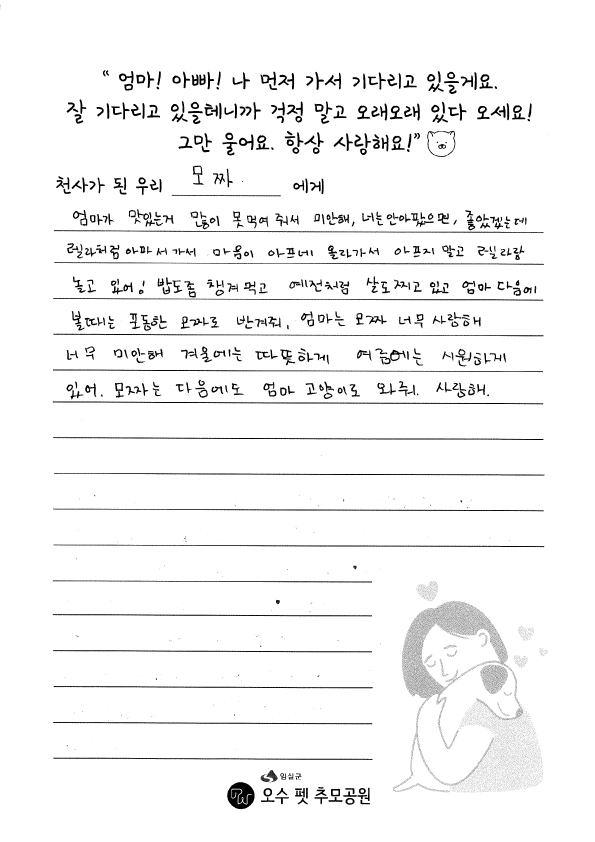 “ 엄마! 아빠! 나 먼저 가서 기다리고 있을게요.
잘 기다리고 있을테니까 걱정 말고 오래오래 있다 오세요!
그만 울어요. 항상 사랑해요!”
천사가 된 우리 모짜 에게
엄마가 맛있는거 많이 못 먹여 줘서 미안해, 너는 안아팠으면, 좋았겠는데
렐라처럼 아파서 가서 마음이 아프네 올라가서 아프지 말고 렐라랑
놀고 있어! 밥도 좀 챙겨 먹고 예전처럼 살도 찌고 있고 엄마 다음에
볼때는 포동한 모짜로 반겨줘, 엄마는 모짜 너무 사랑해
너무 미안해 겨울에는 따뜻하게 여름에는 시원하게
있어. 모짜는 다음에도 엄마 고양이로 와줘. 사랑해.
임실군
오수 펫 추모공원